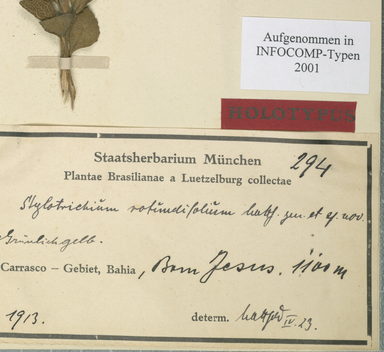 Aufgenommen in
INFOCOMP-Typen
2001
HOLOTYPUS
Staatsherbarium München 294
Plantae Brasilianae a Luetzelburg collectae
Stylotrichium rotundifolium Mattf. gen. et sp. nov.
Grünlichgelb.
Carrasco – Gebiet, Bahia, Bom Jesus. 1100 m
1913. determ. Mattfd IV. 23.